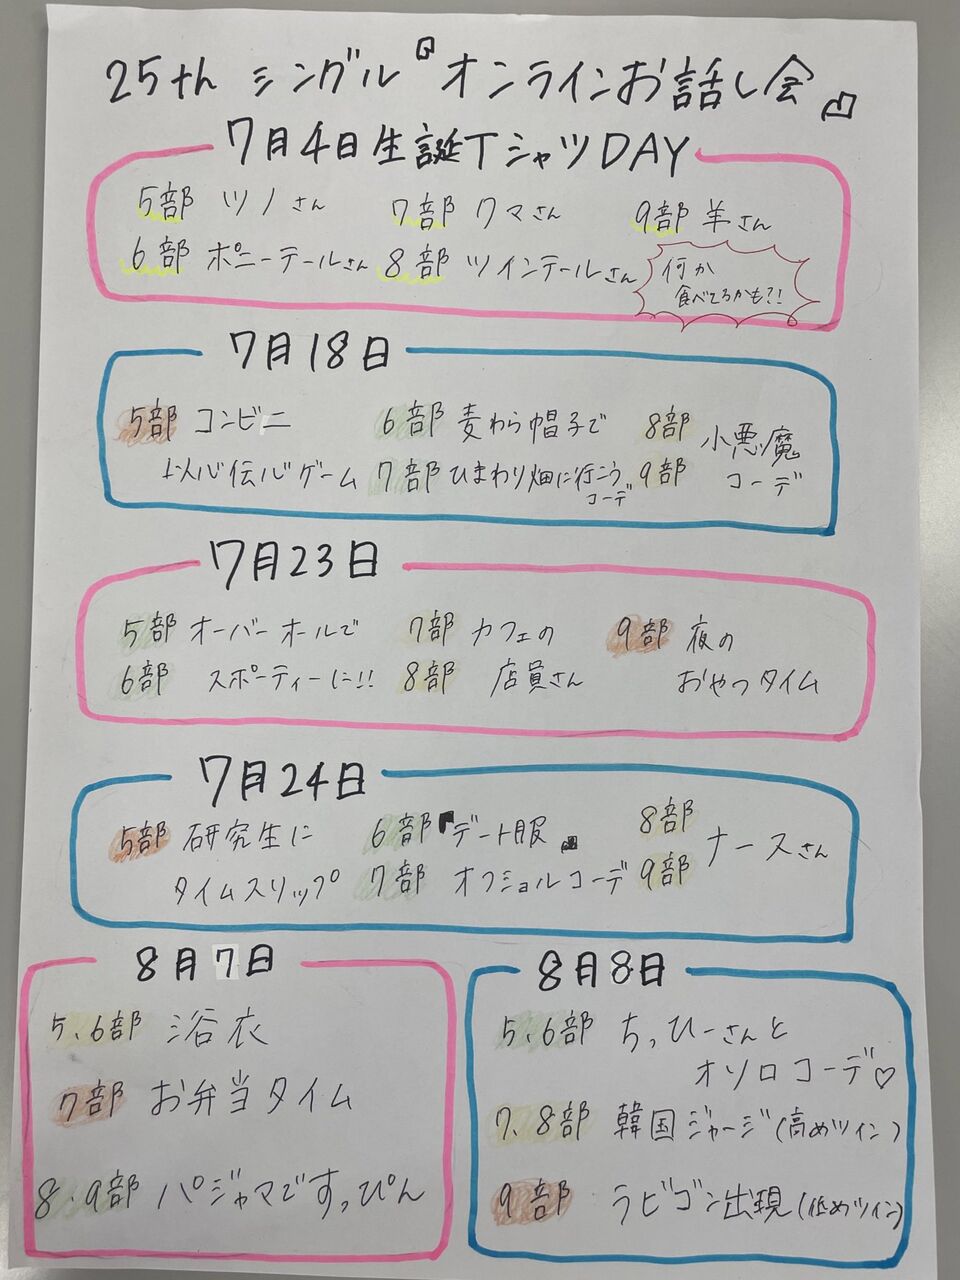 25th シングル『オンラインお話し会』
7月4日生誕TシャツDAY
5部 ツノさん 7部 クマさん 9部 羊さん
6部 ポニーテールさん 8部 ツインテールさん 何か
食べてるかも?!
7月18日
5部 コンビニ 6部 麦わら帽子で 8部 小悪魔
以心伝心ゲーム 7部 ひまわり畑に行こう 9部 コーデ
コーデ
7月23日
5部 オーバーオールで 7部 カフェの 9部 夜の
6部 スポーティーに!! 8部 店員さん おやつタイム
7月24日
5部 研究生に 6部『デート服』 8部 ナースさん
タイムスリップ 7部 オフショルコーデ 9部
8月7日
5、6部 浴衣
7部 お弁当タイム
8、9部 パジャマですっぴん
8月8日
5、6部 ちっひーさんと
オソロコーデ♡
7、8部 韓国ジャージ(高めツイン)
9部 ラビゴン出現(低めツイン)